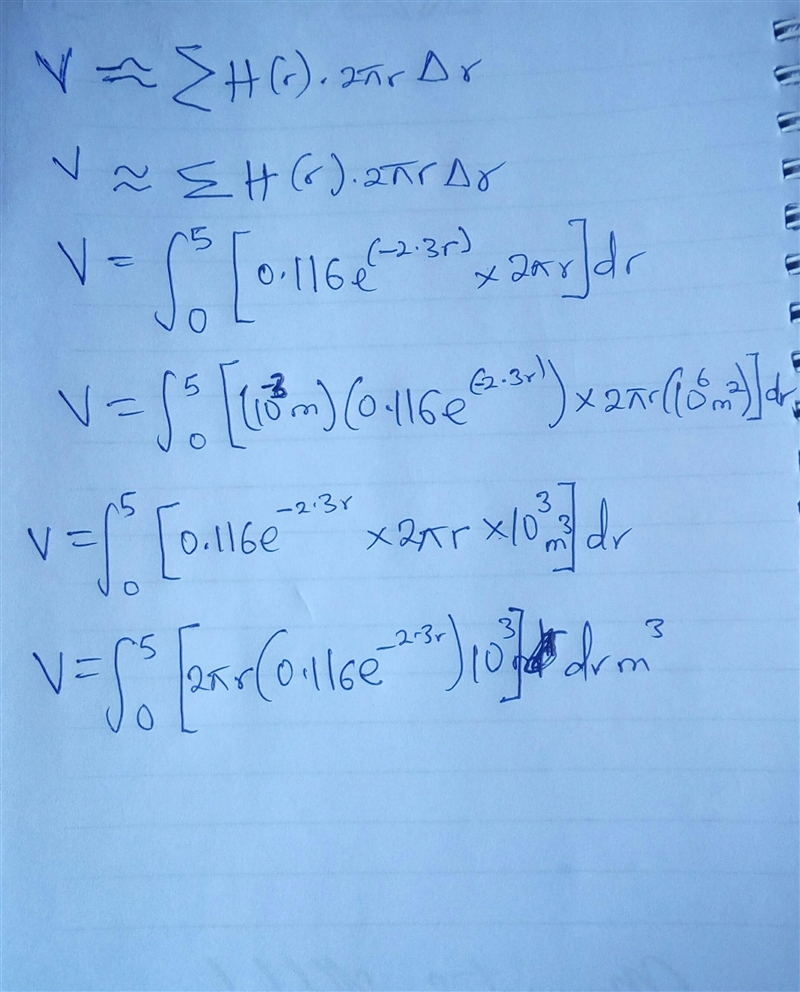 V ≈ ΣH(r)·2πrΔr
V ≈ ΣH(r)·2πrΔr
V = ∫₀⁵ [0.116e^(-2.3r) × 2πr] dr
V = ∫₀⁵ [(10⁻³m)(0.116e^(-2.3r)) × 2πr(10⁶m²)] dr
V = ∫₀⁵ [0.116e^-2.3r × 2πr × 10³ m³] dr
V = ∫₀⁵ [2πr(0.116e^-2.3r)10³] dr m³